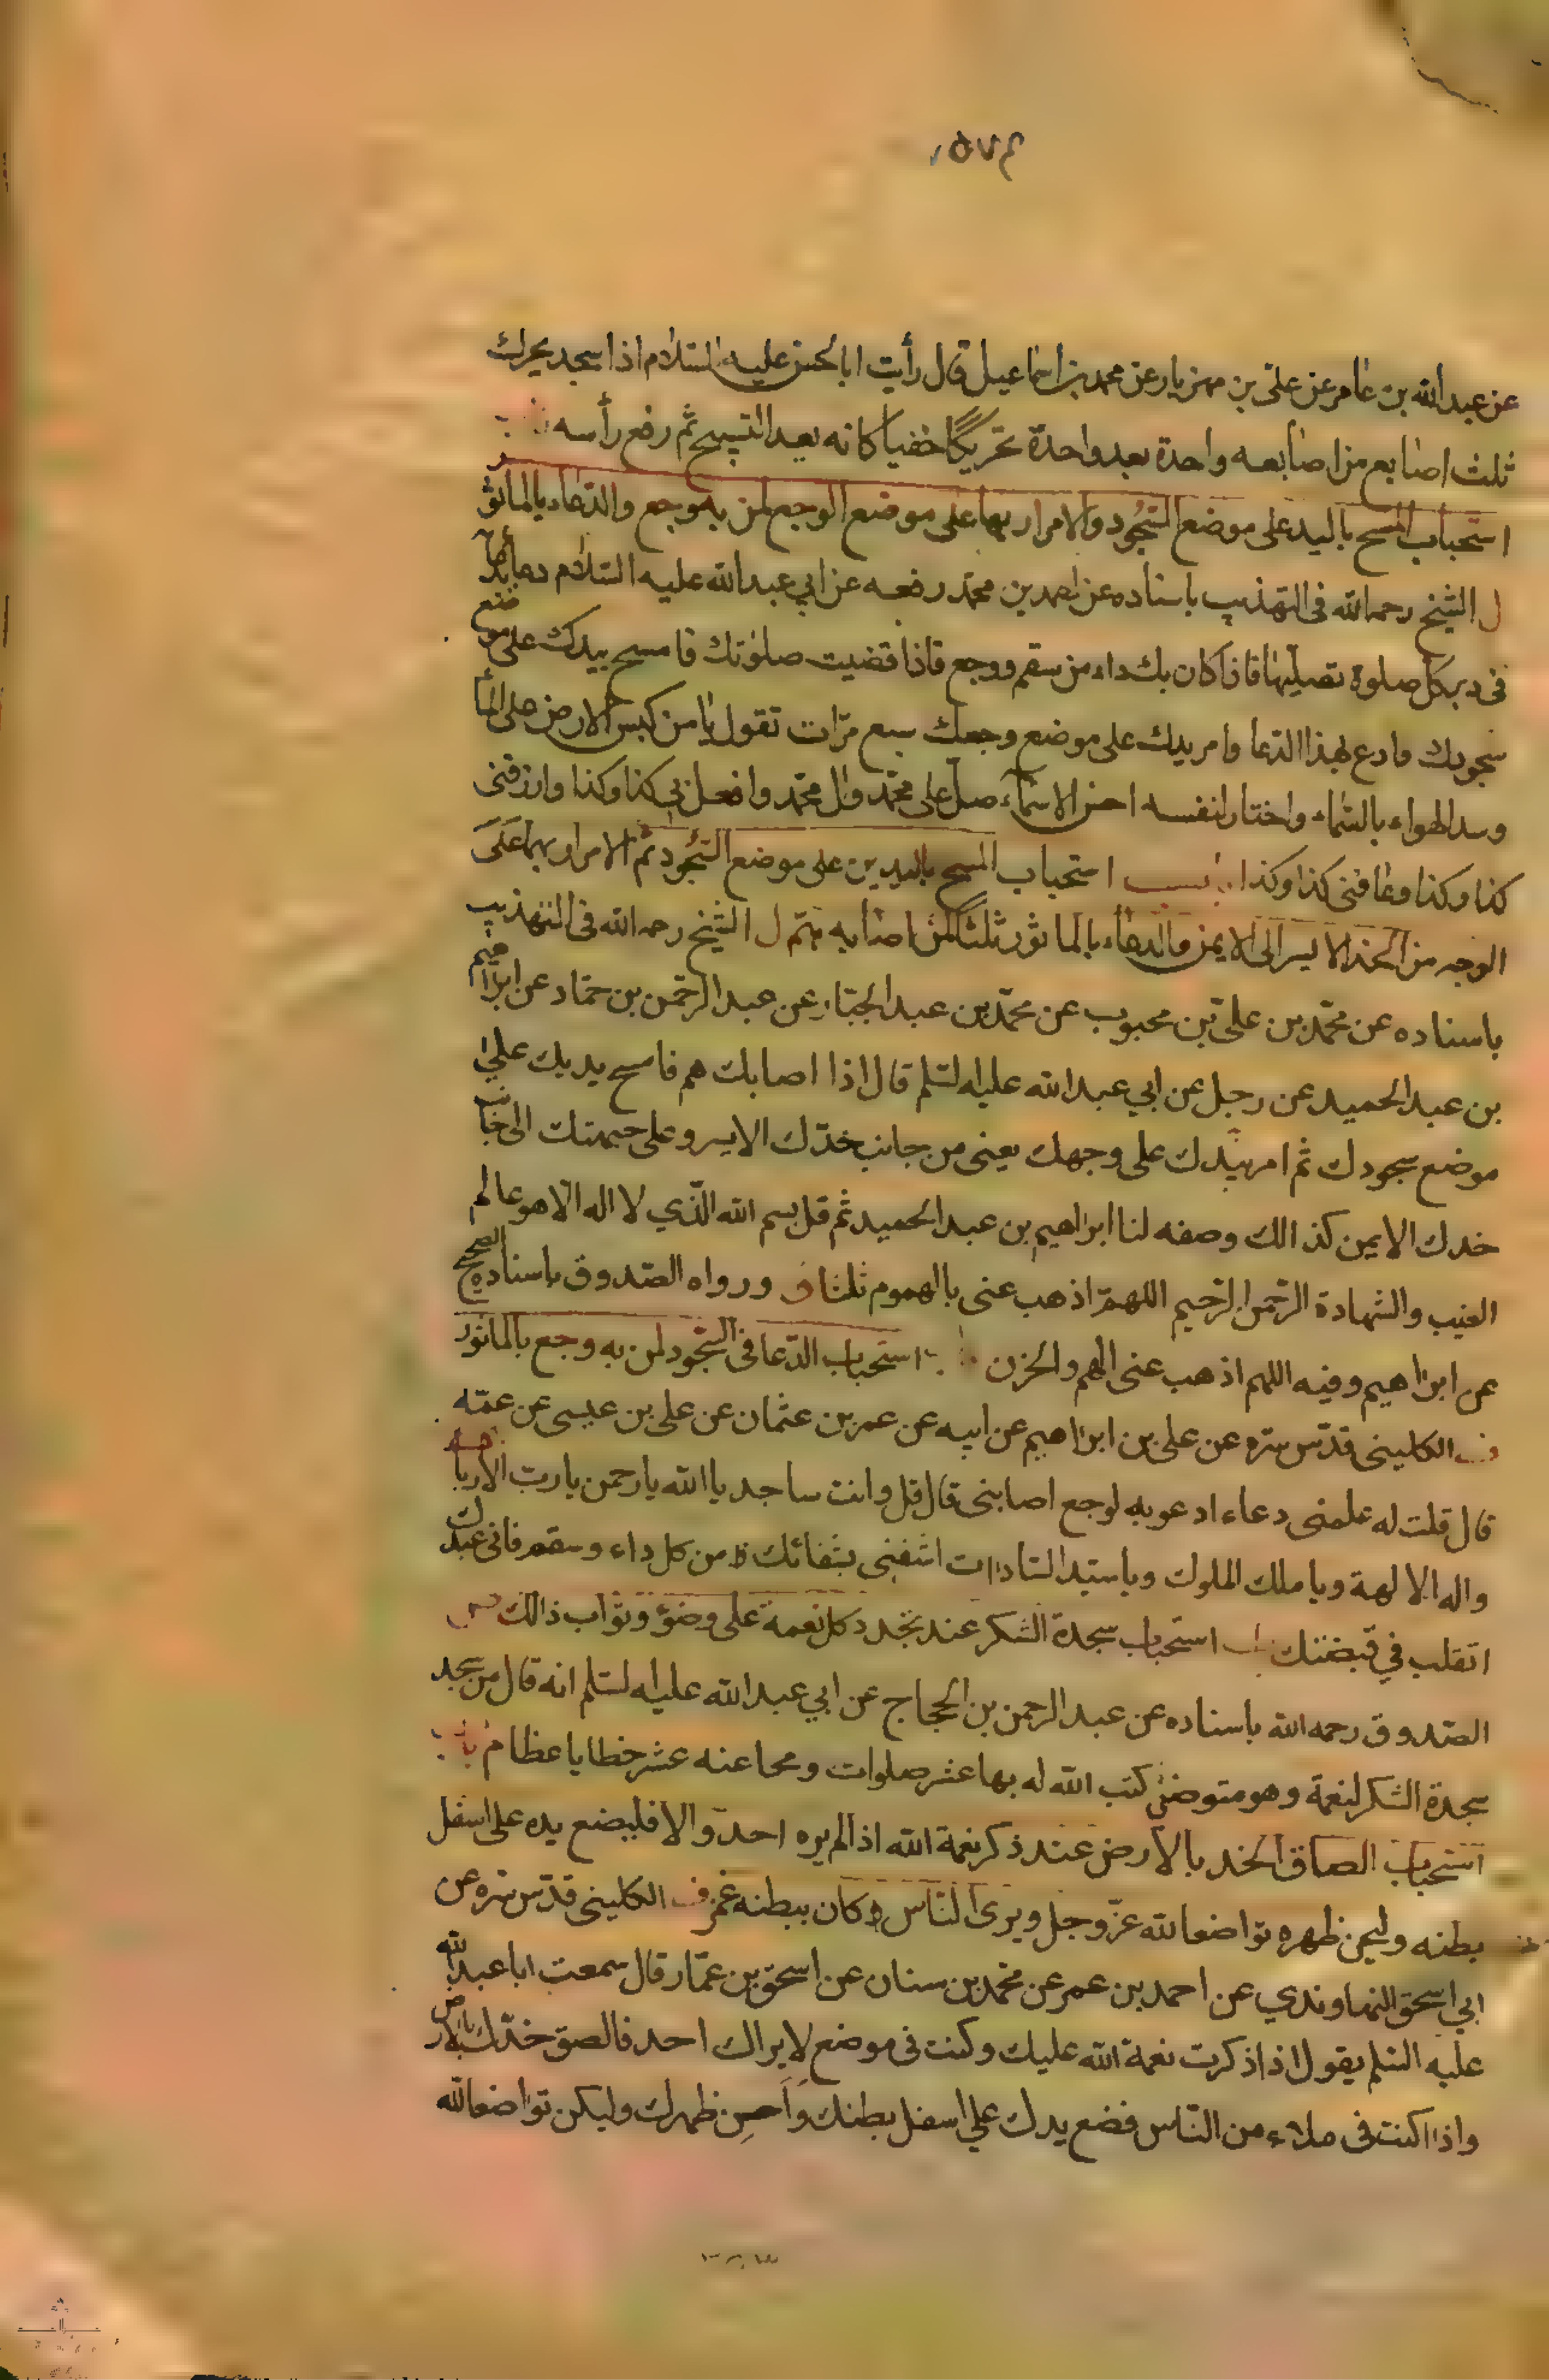 عن عبد الله بن عامر عن على بن مهزيار عن محمد بن اسماعيل قال رأيت ابا الحسن عليه السلام اذا سجد يحرك
ثلث اصابع من اصابعه واحدة بعد واحدة تحريكا خفيا كانه يعد التسبيح ثم رفع رأسه
استحباب المسح باليد على موضع السجود والامرار بها على موضع الوجع لمن به وجع والدعاء بالماثور
ل الشيخ رحمه الله فى التهذيب باسناده عن احمد بن محمد رفعه عن ابي عبد الله عليه السلام دعا
فى دبر كل صلوة تصليها فاذا كان بك داء من سقم ووجع فاذا قضيت صلوتك فامسح بيدك على موضع
سجودك وادع بهذا الدعا وامر يدك على موضع وجعك سبع مرات تقول يا من كبس الارض على الماء
وسد الهواء بالسماء واختار لنفسه احسن الاسماء صل على محمد وال محمد وافعل بي كذا وكذا وارزقنى
كذا وكذا وعافنى كذا وكذا استحباب المسح باليدين على موضع السجود ثم الامرار بهما على
الوجه من الخد الايسر الى الايمن والدعاء بالماثور ثلثا لمن اصابه هم ل الشيخ رحمه الله فى التهذيب
باسناده عن محمد بن على بن محبوب عن محمد بن عبد الجبار عن عبد الرحمن بن حماد عن ابراهيم
بن عبد الحميد عن رجل عن ابي عبد الله عليه السلم قال اذا اصابك هم فامسح يديك على
موضع سجودك ثم امر يدك على وجهك يعنى من جانب خدك الايسر وعلى جبهتك الى جانب
خدك الايمن كذالك وصفه لنا ابراهيم بن عبد الحميد ثم قل بسم الله الذي لا اله الا هو عالم
الغيب والشهادة الرحمن الرحيم اللهم اذهب عنى بالهموم ثلثا ورواه الصدوق باسناده الصحيح
عن ابراهيم وفيه اللهم اذهب عنى الهم والحزن استحباب الدعا فى السجود لمن به وجع بالماثور
الكلينى قدس سره عن على بن ابراهيم عن ابيه عن عمر بن عثمان عن على بن عيسى عن عمه
قال قلت له علمنى دعاء ادعو به لوجع اصابنى قال قل وانت ساجد يا الله يا رحمن يا رب الارباب
واله الالهة ويا ملك الملوك ويا سيد السادات اشفنى بشفائك من كل داء وسقم فانى عبدك
اتقلب في قبضتك استحباب سجدة الشكر عند تجدد كل نعمة على وضوء وثواب ذالك
الصدوق رحمه الله باسناده عن عبد الرحمن بن الحجاج عن ابي عبد الله عليه السلم انه قال من سجد
سجدة الشكر لنعمة وهو متوضئ كتب الله له بها عشر صلوات ومحا عنه عشر خطايا عظام باب
استحباب الصاق الخد بالارض عند ذكر نعمة الله اذا لم يره احد والا فليضع يده على اسفل
بطنه وليحن ظهره تواضعا لله عز وجل ويرى الناس كان ببطنه غمز الكلينى قدس سره عن
ابي اسحق النهاوندي عن احمد بن عمر عن محمد بن سنان عن اسحق بن عمار قال سمعت ابا عبد الله
عليه السلم يقول اذا ذكرت نعمة الله عليك وكنت فى موضع لا يراك احد فالصق خدك بالارض
واذا كنت فى ملاء من الناس فضع يدك على اسفل بطنك واحن ظهرك وليكن تواضعا لله